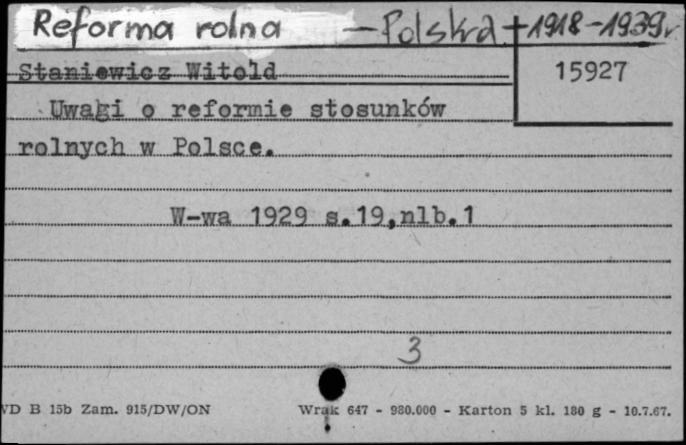 Reforma rolna — Polska + 1918-1939 r
Staniewicz Witold
15927
Uwagi o reformie stosunków
rolnych w Polsce.
W-wa 1929 s.19,nlb.1
3
VD B 15b Zam. 915/DW/ON Wrak 647 - 980.000 - Karton 5 kl. 180 g - 10.7.67.